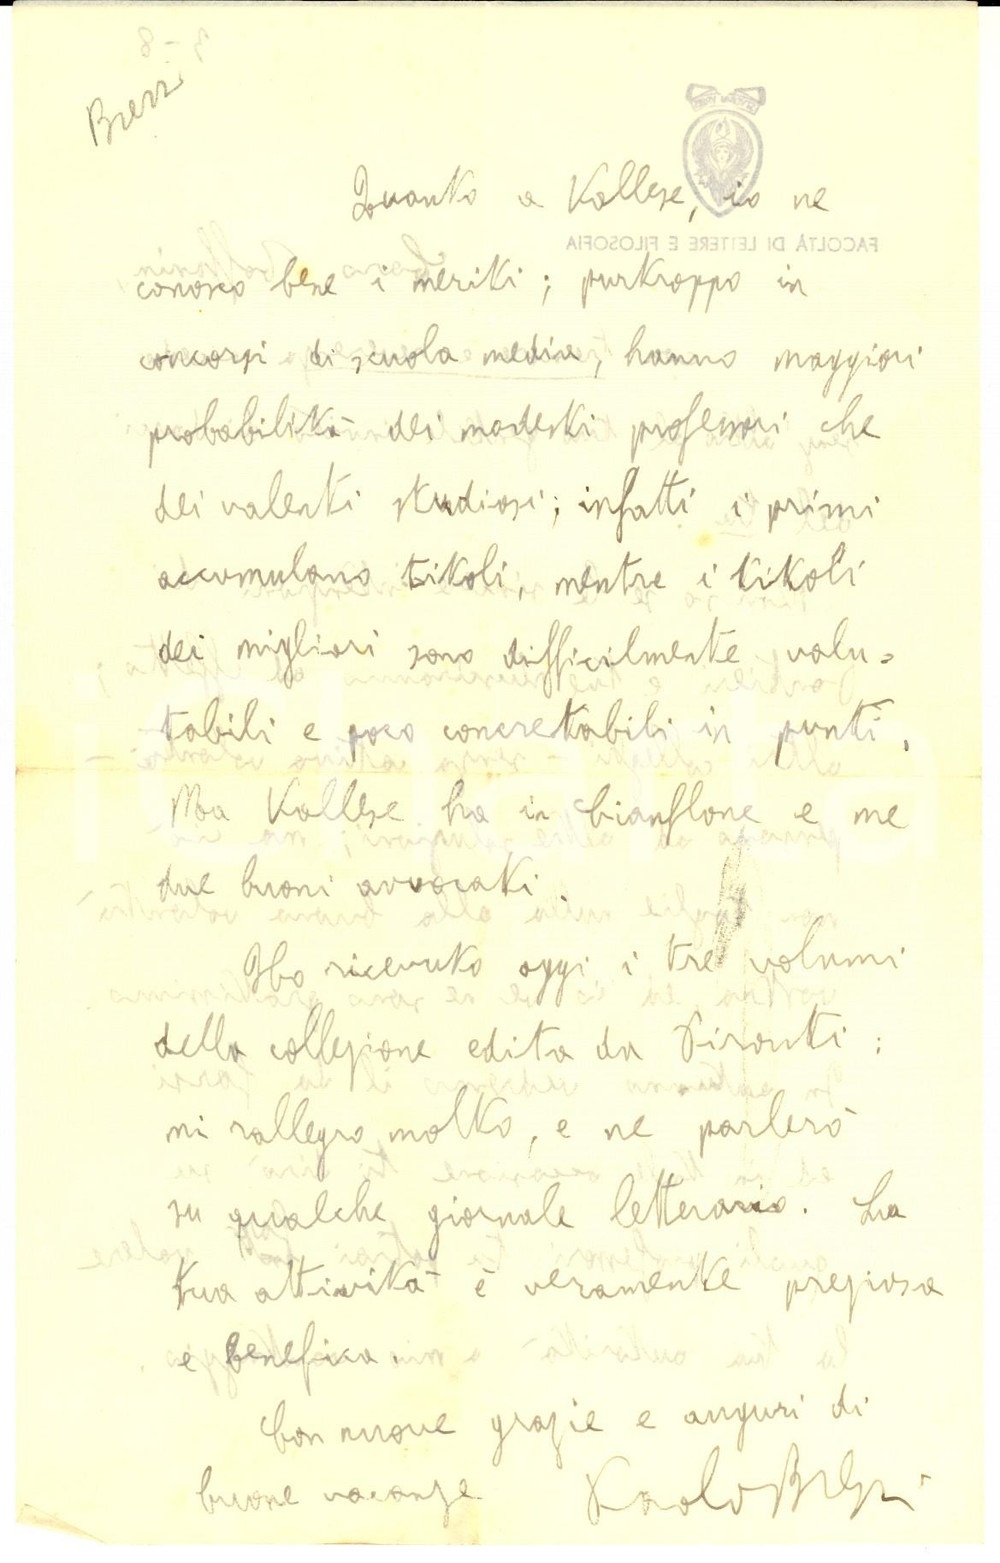 Brezzi
Quanto a Vallese, io ne
FACOLTÀ DI LETTERE E FILOSOFIA
conosco bene i meriti; purtroppo in
concorsi di scuola media, hanno maggiori
probabilità dei modesti professori che
dei valenti studiosi; infatti i primi
accumulano titoli, mentre i titoli
dei migliori sono difficilmente valu-
tabili e poco concretabili in punti.
Ma Vallese ha in Cianflone e me
due buoni avvocati.
Ho ricevuto oggi i tre volumi
della collezione edita da Pironti:
mi rallegro molto, e ne parlerò
su qualche giornale letterario. La
tua attività è veramente preziosa
e benefica.
Con nuove grazie e auguri di
buone vacanze Paolo Brezzi